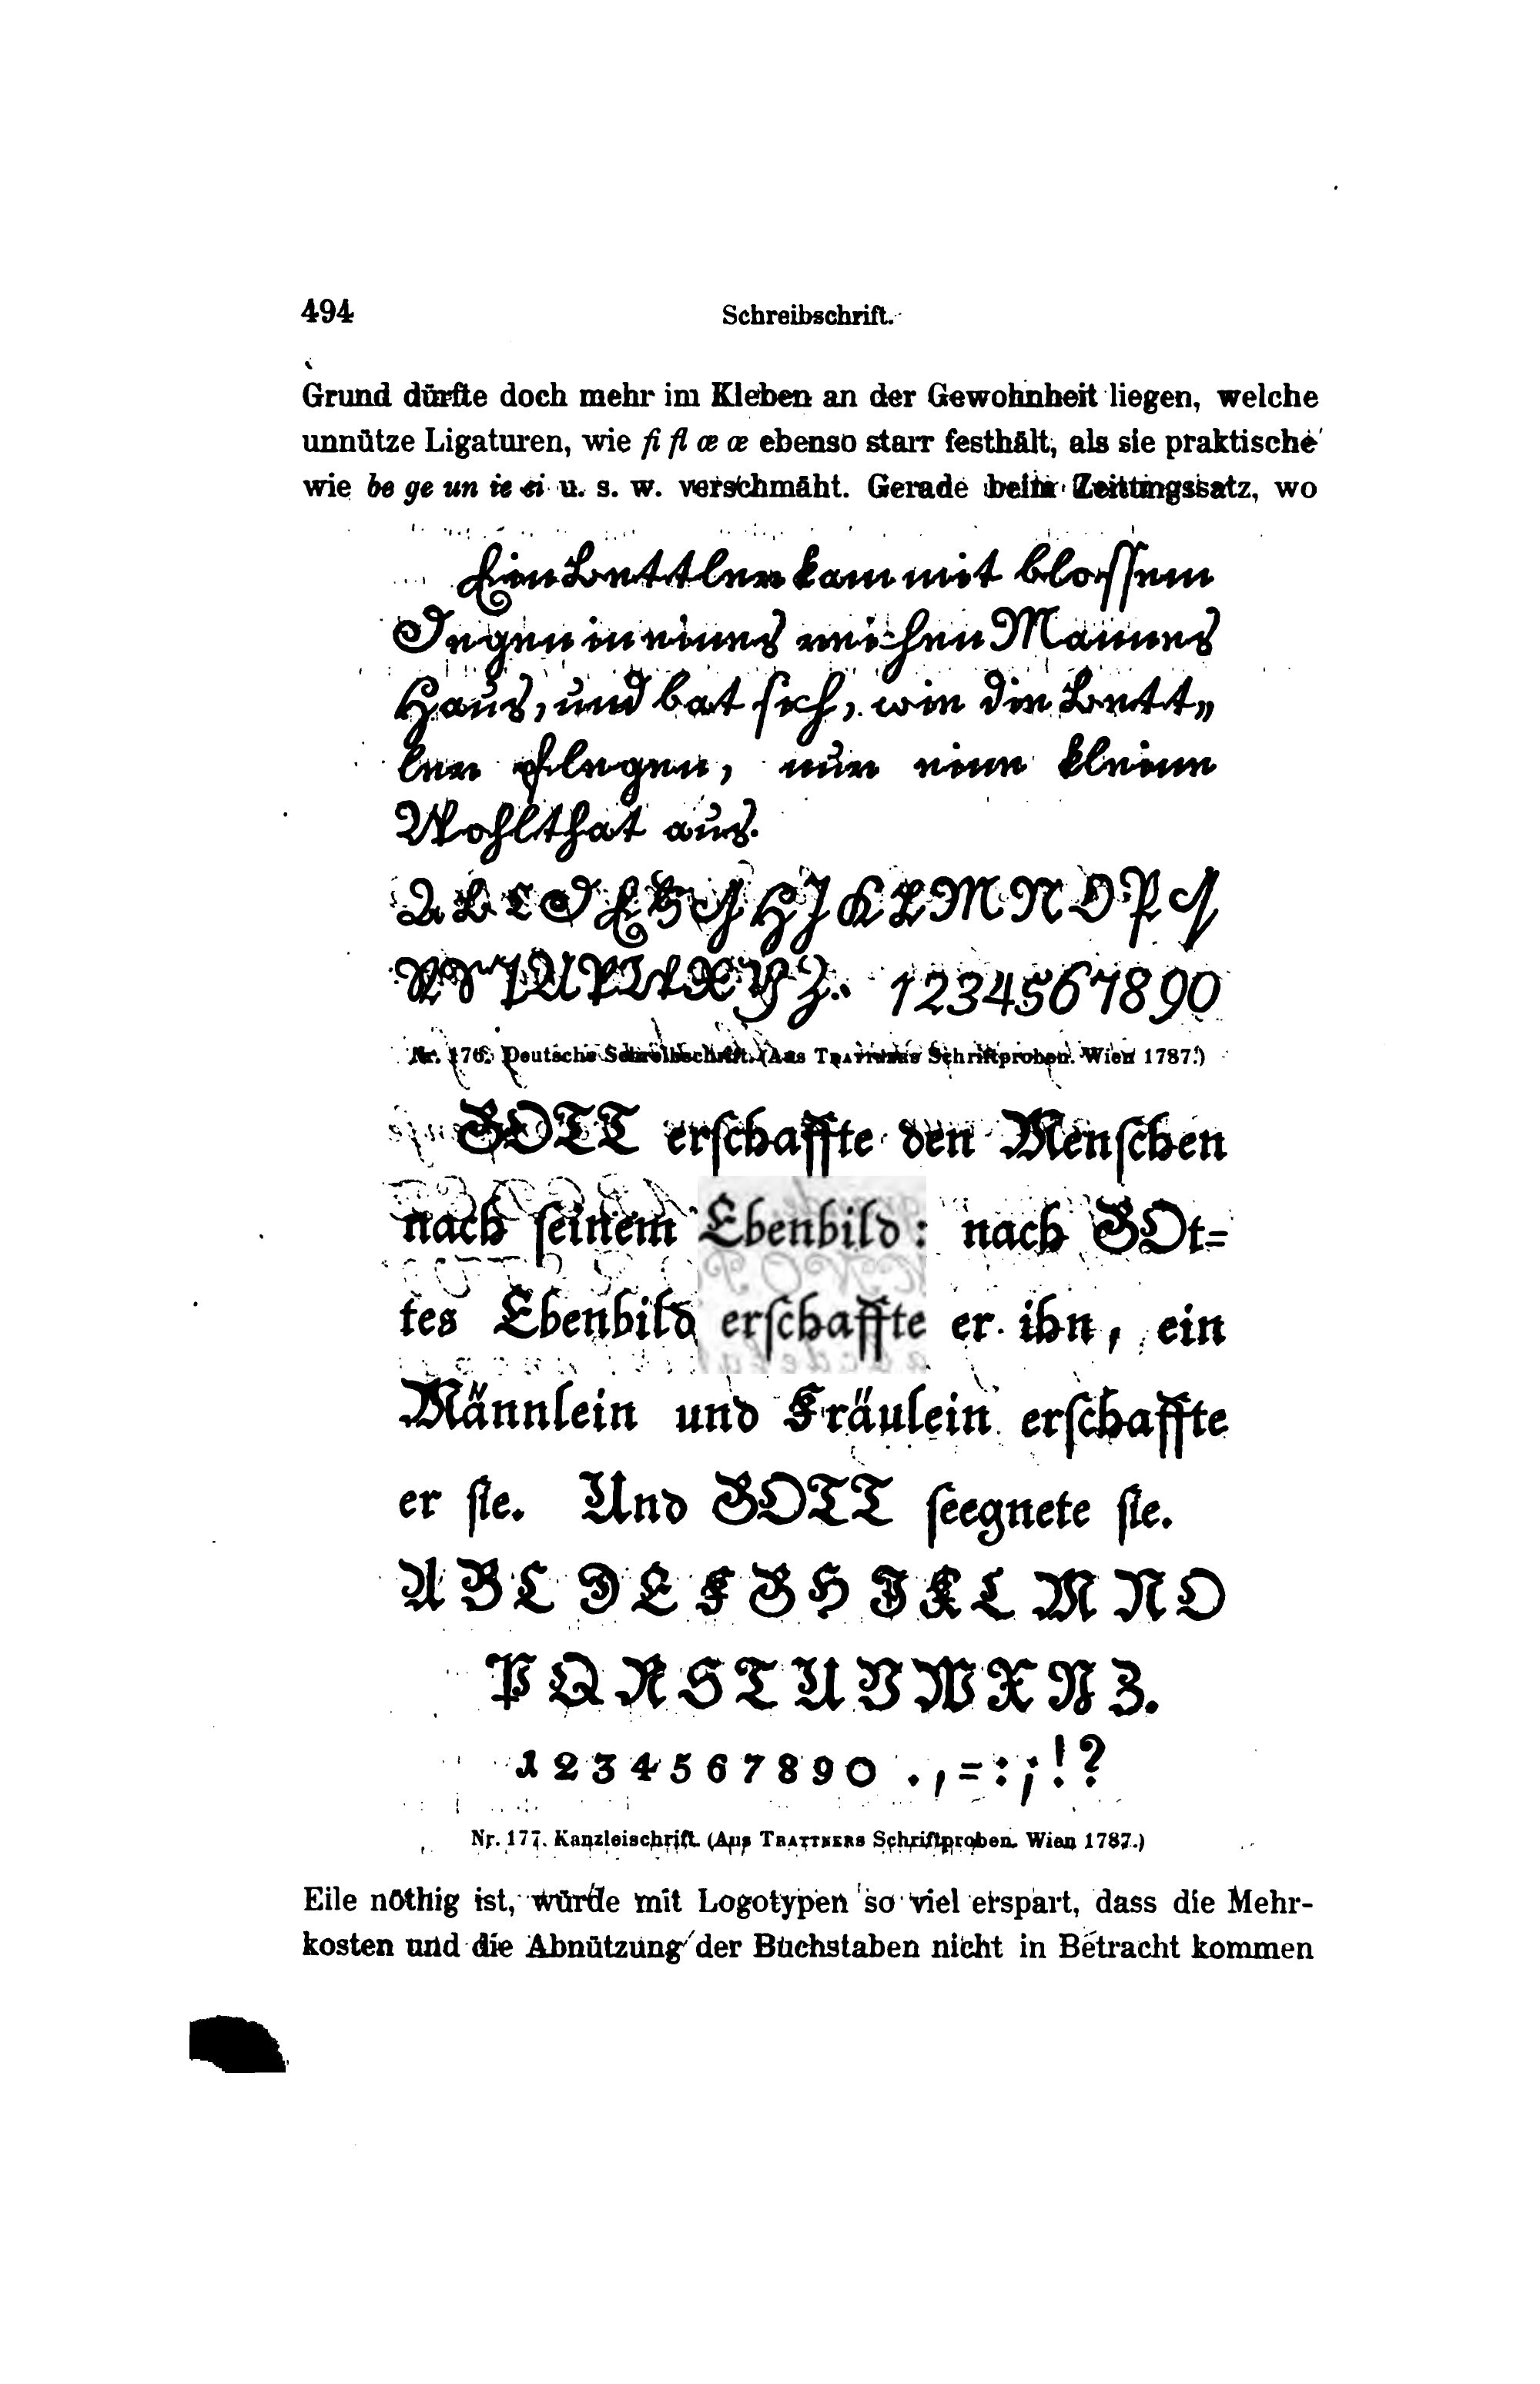 494
Schreibschrift.
Grund dürfte doch mehr im Kleben an der Gewohnheit liegen, welche
unnütze Ligaturen, wie fi fl æ œ ebenso starr festhält, als sie praktische
wie be ge un ie ei u. s. w. verschmäht. Gerade beim Zeitungssatz, wo
Ein Bettler kam mit blossem
Degen in eines reichen Mannes
Haus, und bat sich, wie die Bett„
ler pflegen, nur eine kleine
Wohlthat aus.
A B C D E F G H J K L M N O P Q
R S T U V W X Y Z. 1234567890
Nr. 176. Deutsche Schreibschrift. (Aus TRATTNERS Schriftproben. Wien 1787.)
GOTT erſchaffte den Menſchen
nach ſeinem Ebenbild: nach GOt=
tes Ebenbild erſchaffte er ihn, ein
Männlein und Fräulein erſchaffte
er ſie. Und GOTT ſeegnete ſie.
A B C D E F G H J K L M N O
P Q R S T U V W X Y Z.
1 2 3 4 5 6 7 8 9 0 . , = : ; ! ?
Nr. 177. Kanzleischrift. (Aus TRATTNERS Schriftproben. Wien 1787.)
Eile nöthig ist, würde mit Logotypen so viel erspart, dass die Mehr-
kosten und die Abnützung der Buchstaben nicht in Betracht kommen